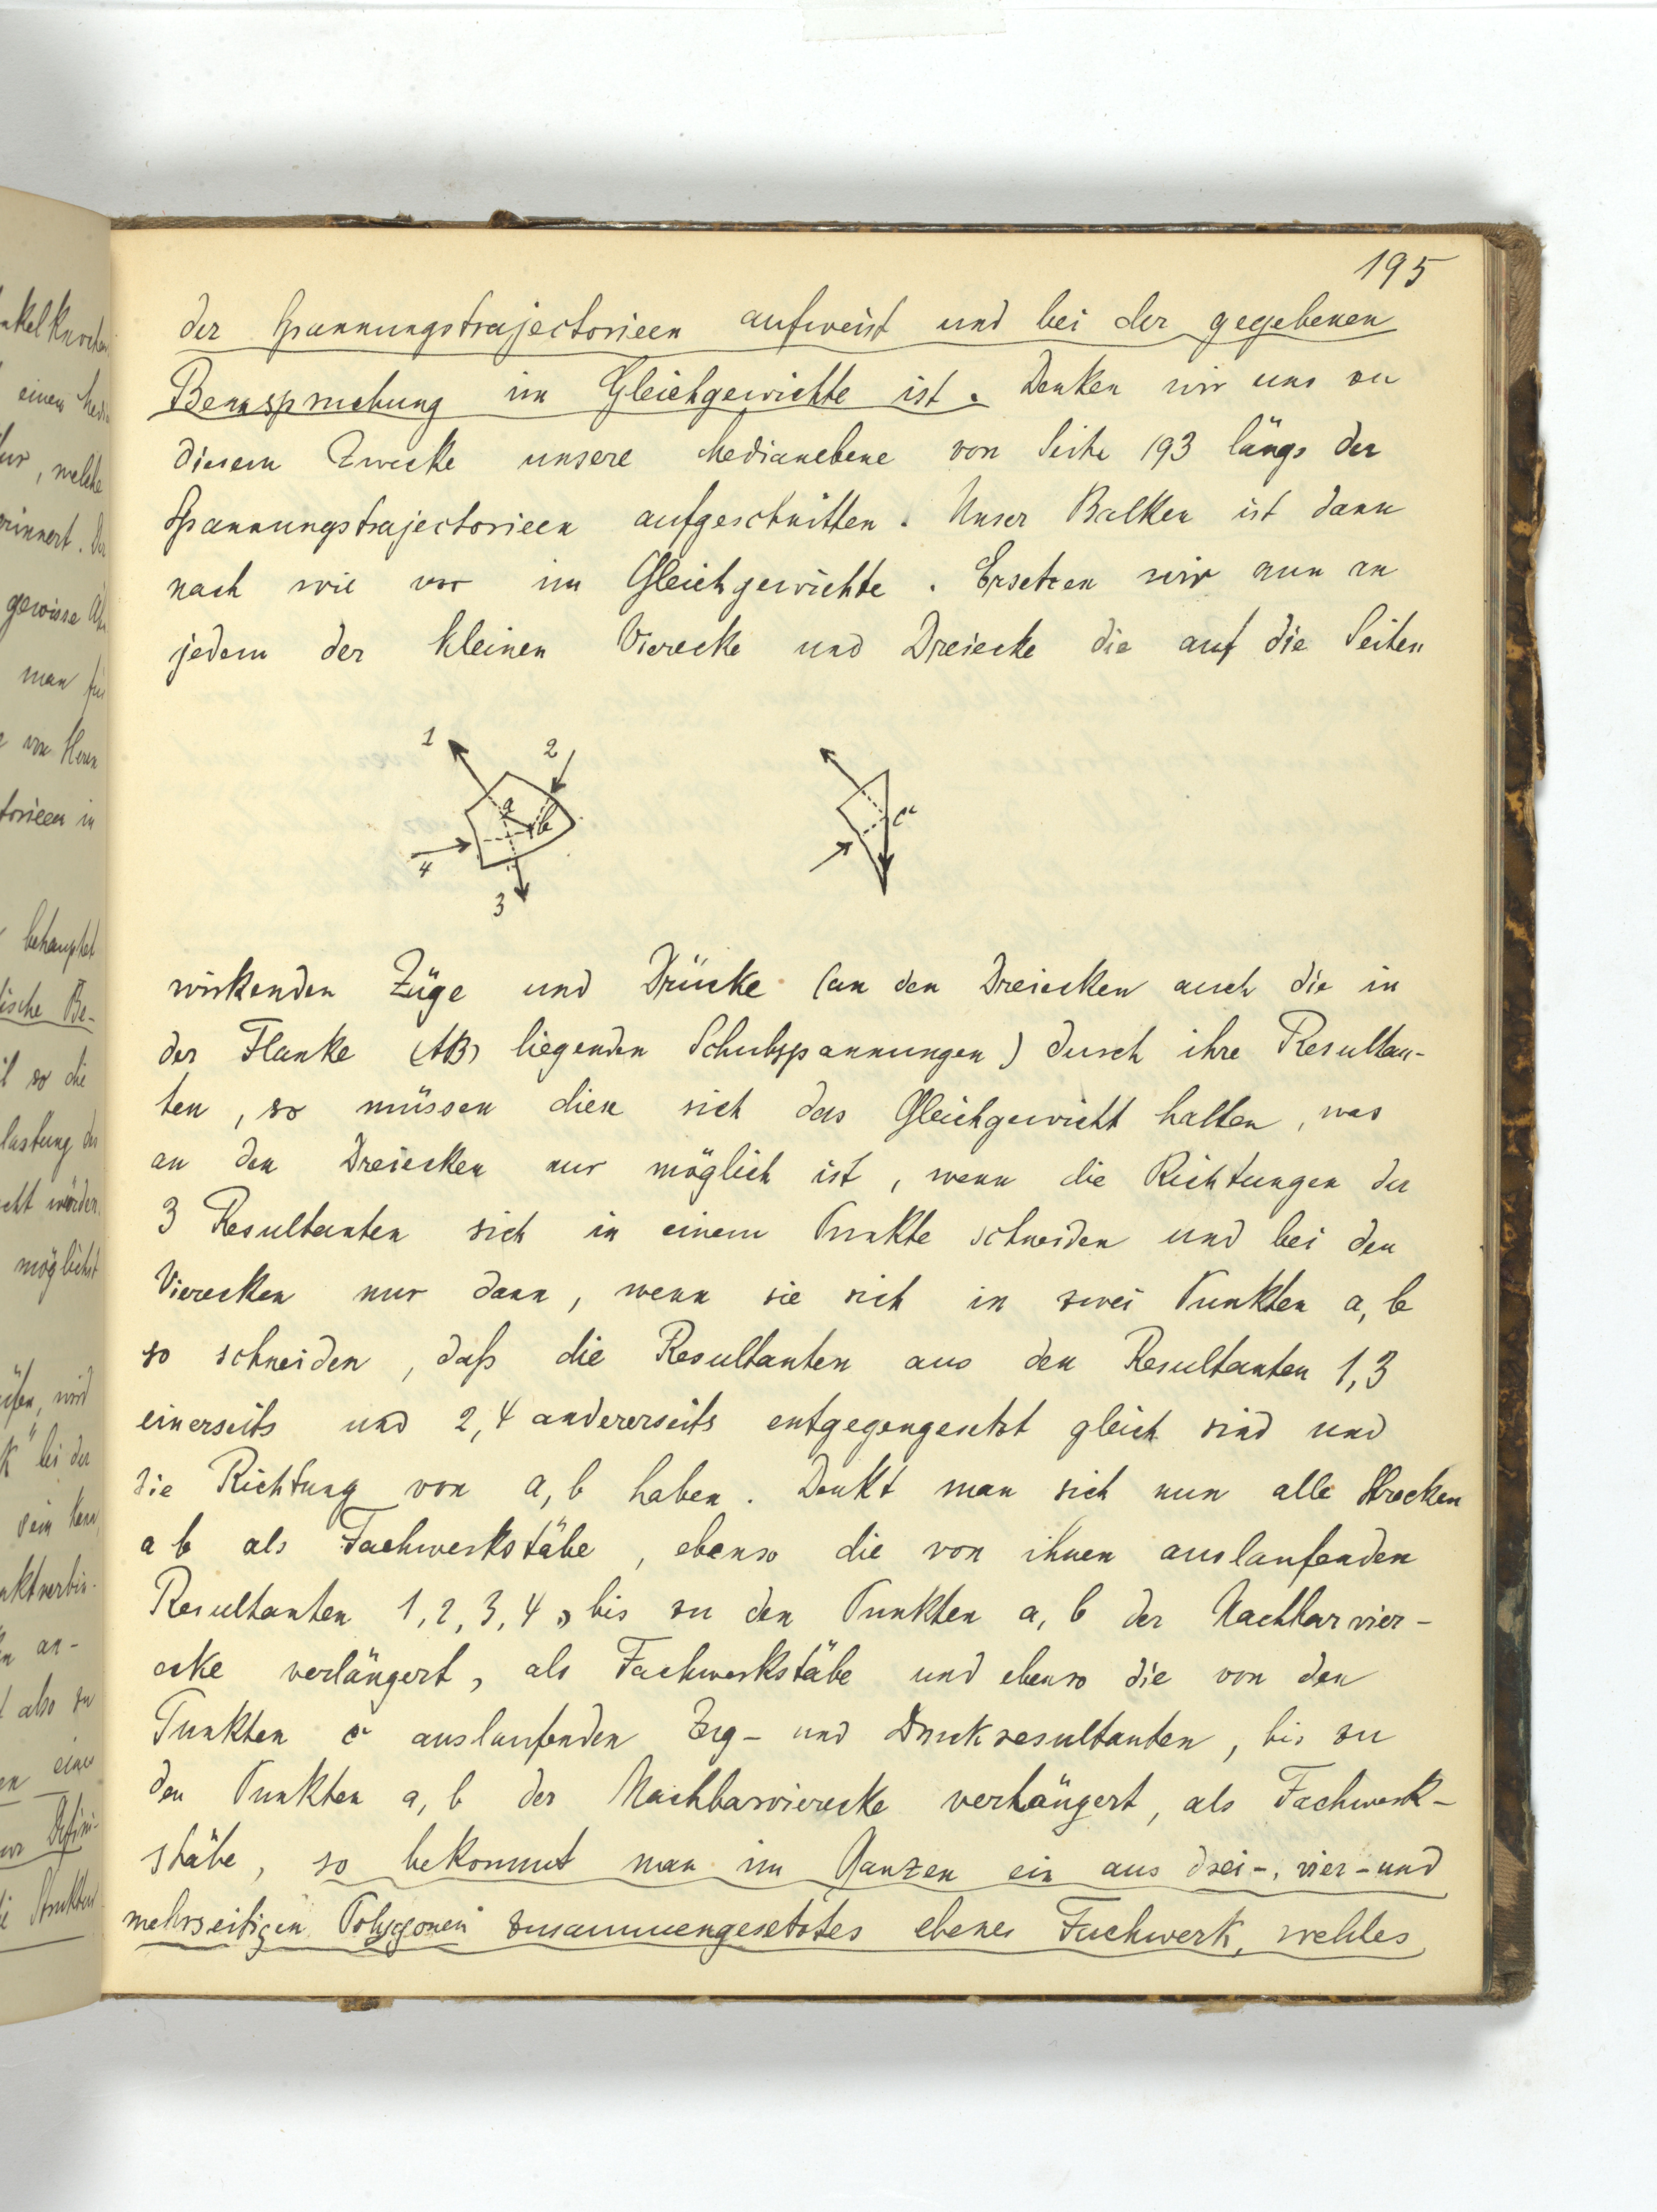 195
der Spannungstrajectorieen aufweist und bei der gegebenen
Beanspruchung im Gleichgewichte ist. Denken wir uns zu
diesem Zwecke unsere Medianebene von Seite 193 längs der
Spannungstrajectorieen aufgeschnitten. Unser Balken ist dann
nach wie vor im Gleichgewichte. Ersetzen wir nun an
jedem der kleinen Vierecke und Dreiecke die auf die Seiten
1 2
a b c
4
3
wirkenden Züge und Drücke (an den Dreiecken auch die in
der Flanke (AB) liegenden Schubspannungen) durch ihre Resultan-
ten, so müssen diese sich das Gleichgewicht halten, was
an den Dreiecken nur möglich ist, wenn die Richtungen der
3 Resultanten sich in einem Punkte schneiden und bei den
Vierecken nur dann, wenn sie sich in zwei Punkten a, b
so schneiden, daß die Resultanten aus den Resultanten 1,3
einerseits und 2,4 andererseits entgegengesetzt gleich sind und
die Richtung von a, b haben. Denkt man sich nun alle Strecken
a b als Fachwerkstäbe, ebenso die von ihnen auslaufenden
Resultanten 1, 2, 3, 4, bis zu den Punkten a, b der Nachbarvier-
ecke verlängert, als Fachwerkstäbe und ebenso die von den
Punkten c auslaufenden Zug- und Druckresultanten, bis zu
den Punkten a, b der Nachbarvierecke verlängert, als Fachwerk-
stäbe, so bekommt man im Ganzen ein aus drei-, vier- und
mehrseitigen Polygonen zusammengesetztes ebenes Fachwerk, welches